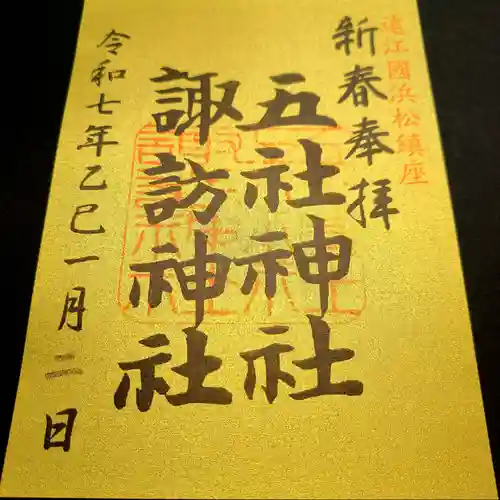 遠江國浜松鎮座
新春奉拝
五社神社
諏訪神社
令和七年乙巳一月二日